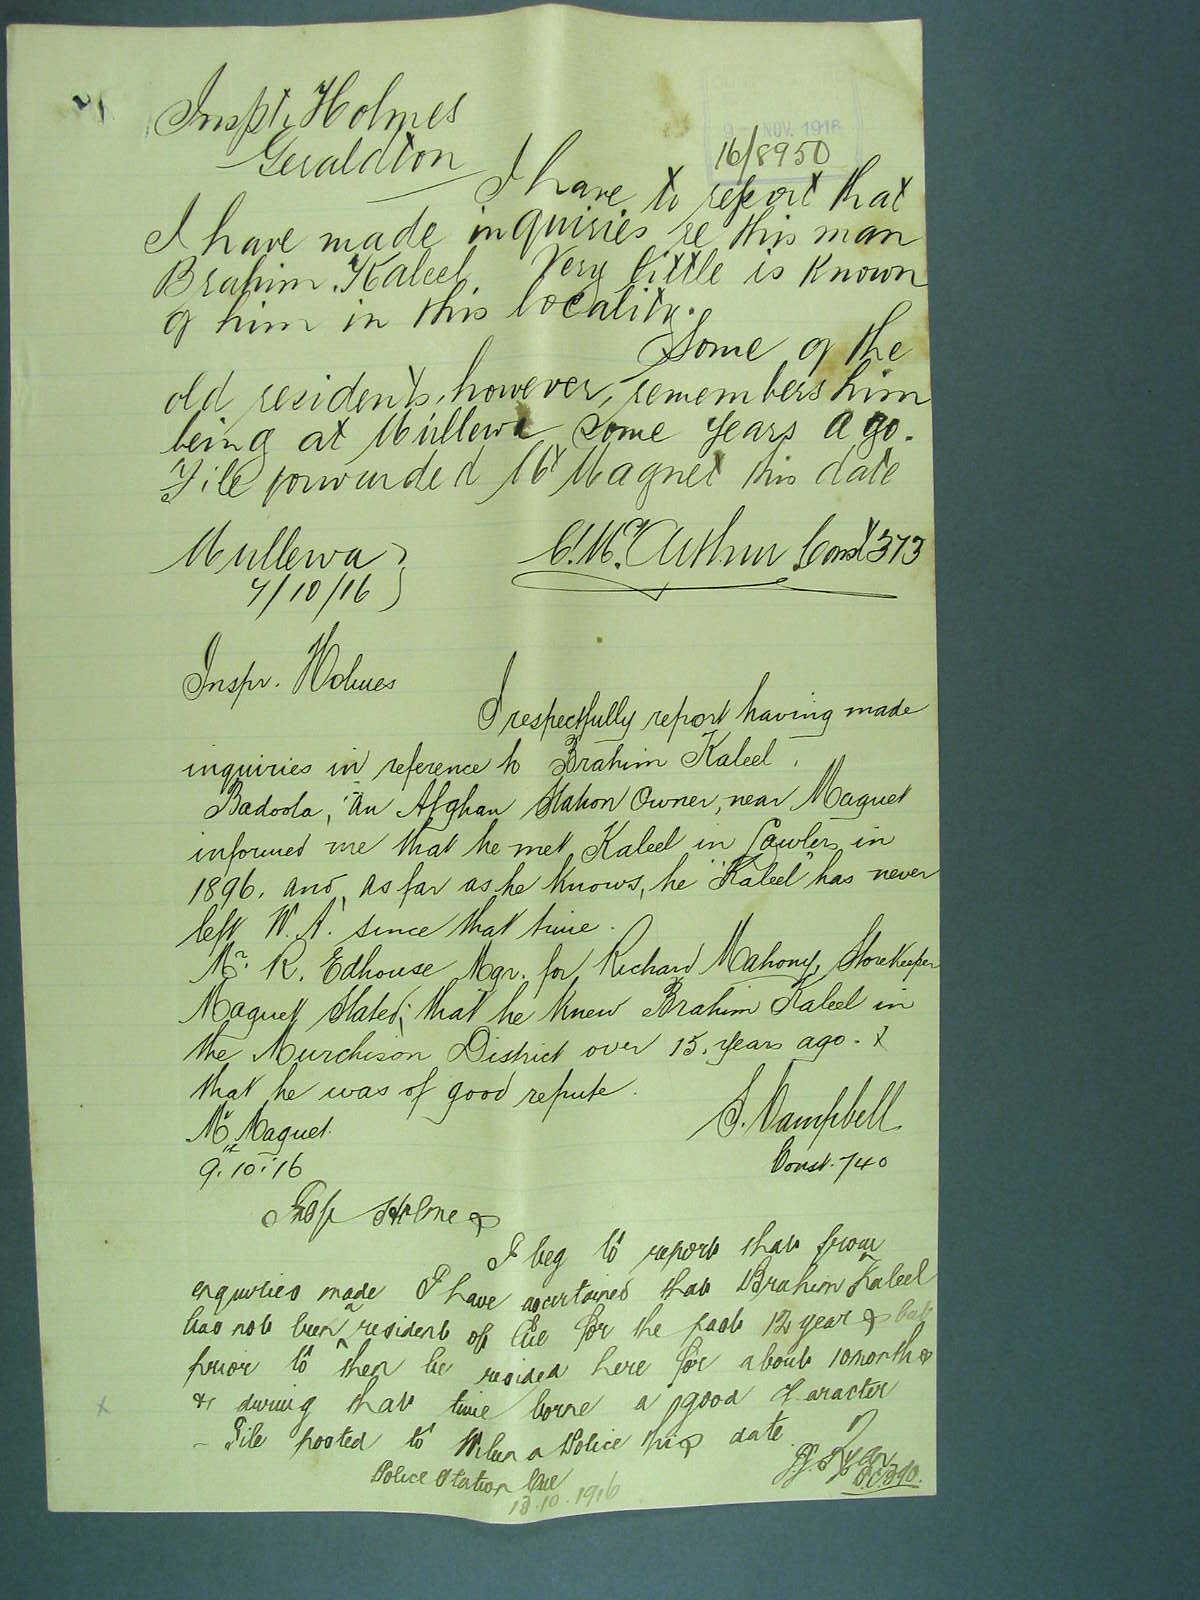 9 NOV. 1916
16/8950
Inspt. Holmes
Geraldton
I have to report that
I have made inquiries re this man
Brahim Kaleel. Very little is known
of him in this locality.
Some of the
old residents, however, remembers him
being at Mullewa some years ago.
File forwarded Mt Magnet this date
C. McArthur Const 373
Mullewa
7/10/16
Inspr. Holmes
I respectfully report having made
inquiries in reference to Brahim Kaleel.
Badoola, an Afghan Station Owner, near Magnet
informed me that he met Kaleel in Lawlers in
1896, and, as far as he knows, he "Kaleel" has never
left W. A. since that time.
Mr. R. Edhouse Mgr. for Richard Mahony, Storekeeper
Magnet stated, that he knew Brahim Kaleel in
the Murchison District over 15 years ago. &
that he was of good repute.
S. Campbell
Mt Magnet.
Const. 740
9.10.16
Insp Holmes
I beg to report that from
enquiries made I have ascertained that Brahim Kaleel
has not been resident of Cue for the past 12 years but
prior to then he resided here for about 10 months
& during that time borne a good character
- File posted to Wiluna Police this date
Ryan
Police Station Cue
13.10.1916